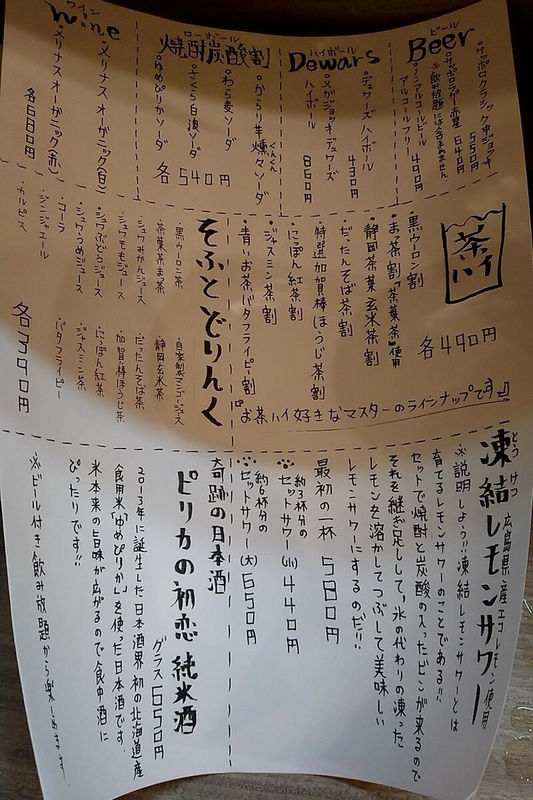 ビール
Beer
・サッポロクラシック中ジョッキ
550円
・サッポロラガー赤星 640円
※飲み放題には含まれません
・ノンアルコールビール
アルコールフリー 490円
ハイボール
Dewars
・デュワーズハイボール
490円
・メガジョッキデュワーズ
ハイボール 860円
ローボール
焼酎炭酸割
・からり芋燻々ソーダ
くんくん
・わら麦ソーダ
・さくら白波ソーダ
・ゆめぴりかソーダ
各540円
ワイン
Wine
・メリナスオーガニック(白)
・メリナスオーガニック(赤)
各680円
茶ハイ
各490円
・黒ウーロン割
・お茶割「茶葉茶」使用
・静岡茶葉玄米茶割
・だったんそば茶割
・特選加賀棒ほうじ茶割
・にっぽん紅茶割
・ジャスミン茶割
・青いお茶バタフライピー割
『お茶ハイ好きなマスターのラインナップです』
そふとどりんく
・黒ウーロン茶
・茶葉茶ま茶
・シュワみかんジュース
・シュワももジュース
・シュワぶどうジュース
・シュワうめジュース
・コーラ
・ジンジャエール
・カルピス
・自家製マンゴージュース
・静岡玄米茶
・だったんそば茶
・加賀棒ほうじ茶
・にっぽん紅茶
・ジャスミン茶
・バタフライピー
各390円
とうけつ
凍結レモンサワー
広島県産エコレモン使用
※説明しよう!!凍結レモンサワーとは
育てるレモンサワーのことである!!
セットで焼酎と炭酸の入ったビンが来るので
それを継ぎ足して、氷の代わりの凍った
レモンを溶かしてつぶして美味しい
レモンサワーにするのだ!!
最初の一杯 580円
約3杯分の
セットサワー(小) 440円
約6杯分の
セットサワー(大) 650円
奇跡の日本酒
ピリカの初恋 純米酒
グラス650円
2013年に誕生した日本酒界初の北海道産
食用米「ゆめぴりか」を使った日本酒です。
米本来の旨味が広がるので食中酒に
ぴったりです!!
※ビール付き飲み放題から楽しめます